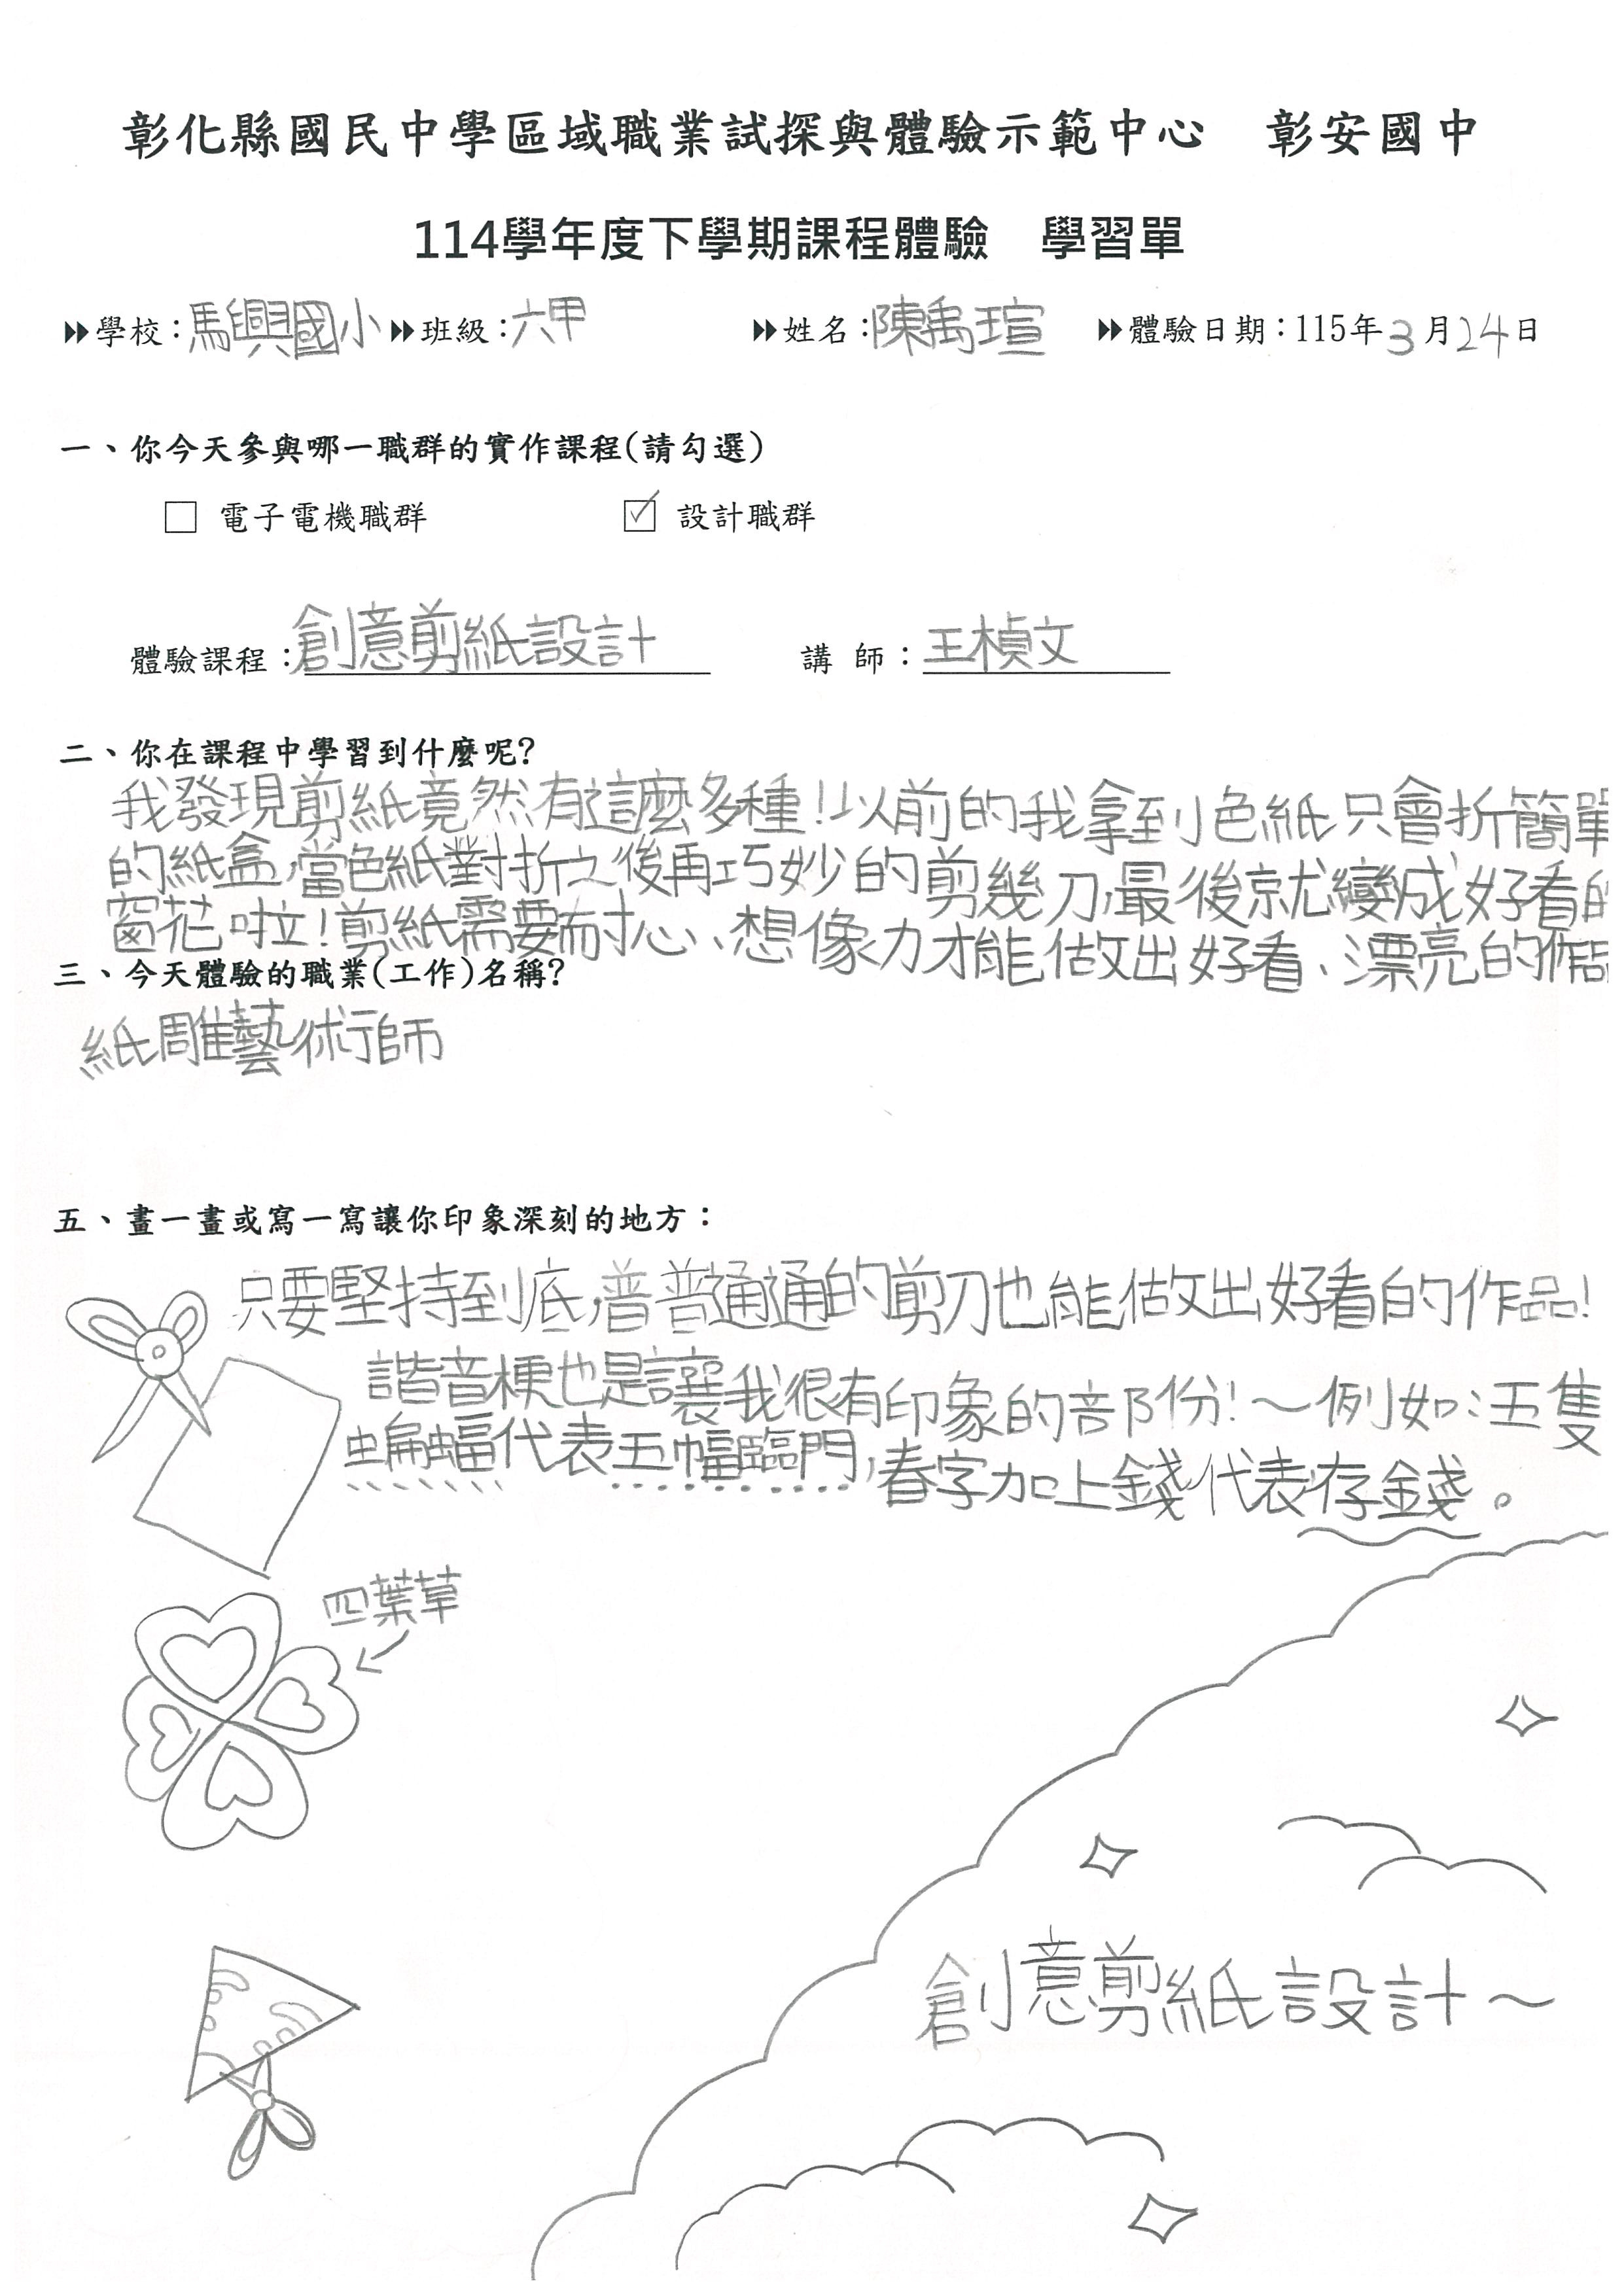 彰化縣國民中學區域職業試探與體驗示範中心　彰安國中
114學年度下學期課程體驗　學習單
學校：馬興國小 班級：六甲 姓名：陳禹瑄 體驗日期：115年3月24日
一、你今天參與哪一職群的實作課程(請勾選)
□ 電子電機職群 ☑ 設計職群
體驗課程：創意剪紙設計 講師：王楨文
二、你在課程中學習到什麼呢?
我發現剪紙竟然有這麼多種！以前的我拿到小色紙只會折簡單
的紙盒，當色紙對折之後再巧妙的剪幾刀，最後就變成好看的
窗花啦！剪紙需要耐心、想像力才能做出好看、漂亮的作品
三、今天體驗的職業(工作)名稱?
紙雕藝術師
五、畫一畫或寫一寫讓你印象深刻的地方：
只要堅持到底，普普通通的剪刀也能做出好看的作品！
諧音梗也是讓我很有印象的部份！～例如：五隻
蝙蝠代表五幅臨門，春字加上錢代表存錢。
四葉草
創意剪紙設計～